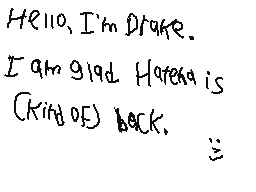 Hello, I'm Drake.
I am glad Hatena is
(kind of) back.